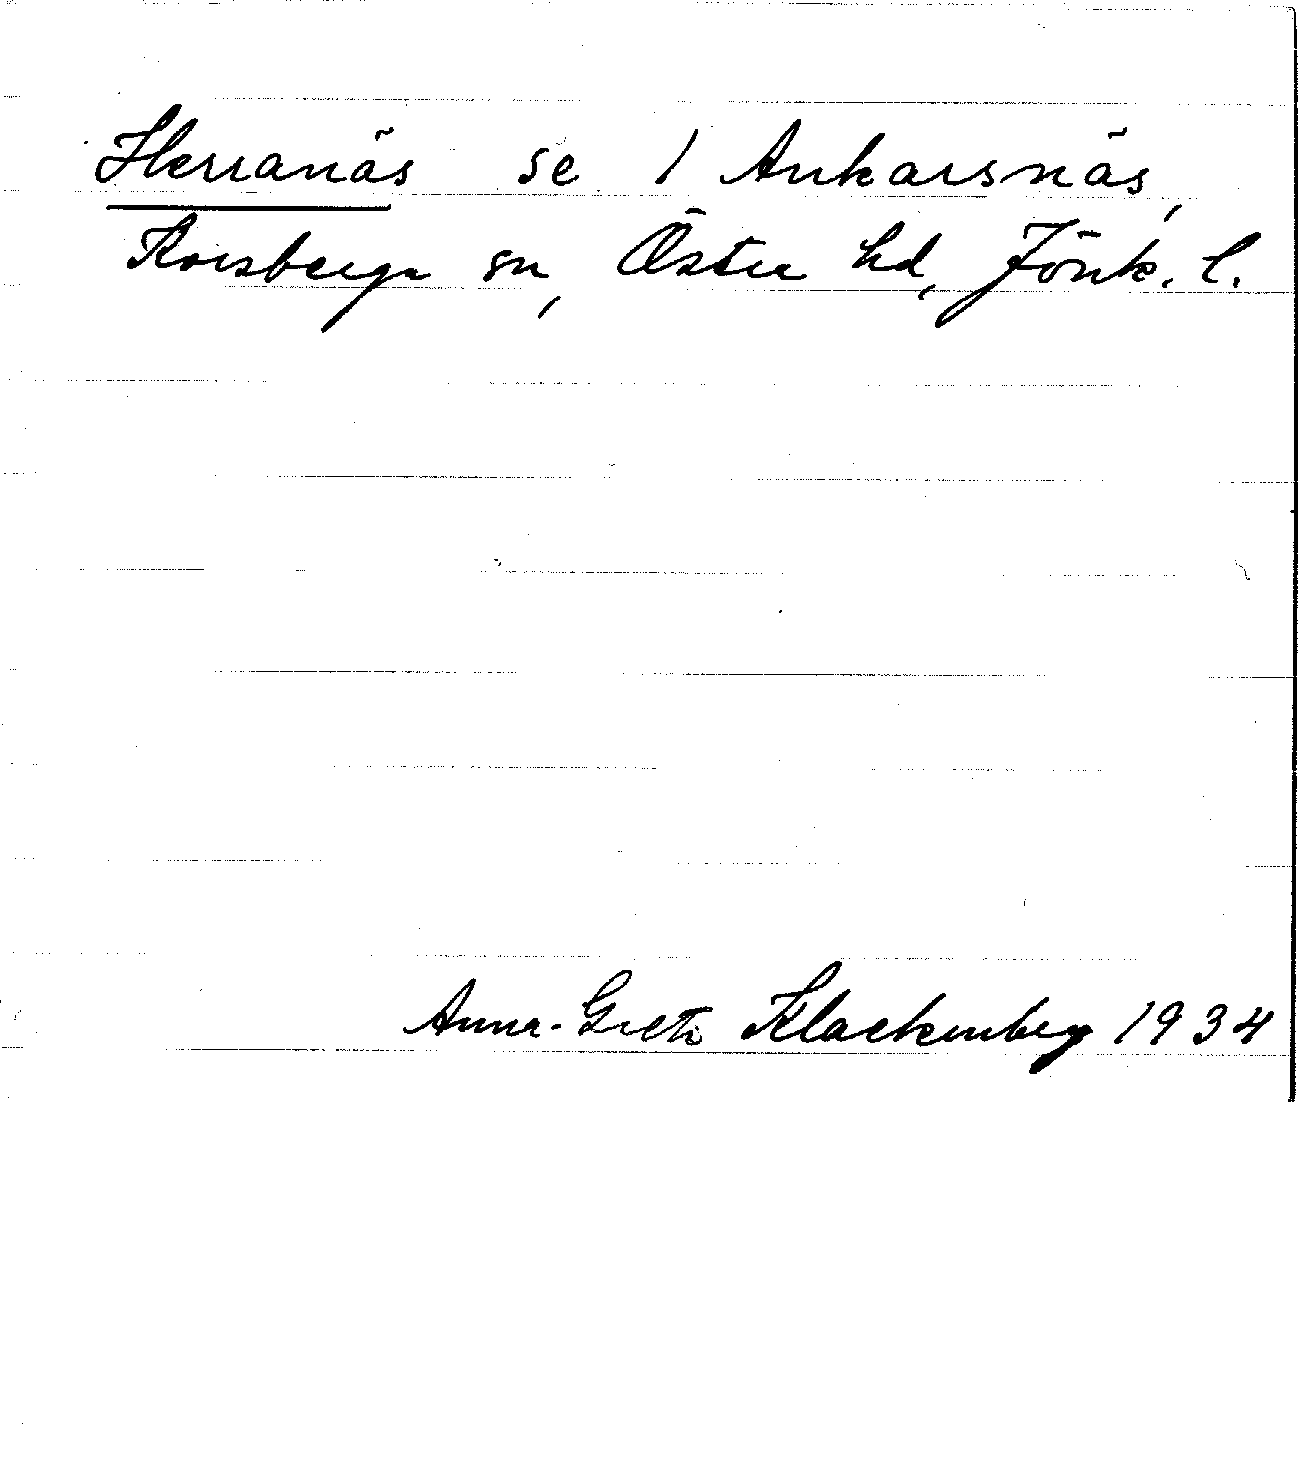 Herranäs se 1 Ankarsnäs,
Korsberga sn, Östra hd, Jönk. l.
Anna-Greta Klackenberg 1934